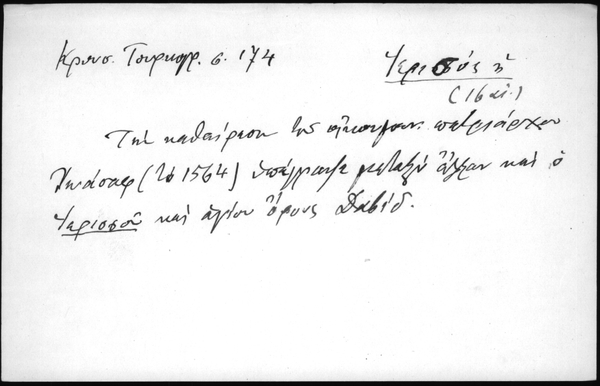 Κρουσ. Τουρκογρ. σ. 174
Ἱερισσός ἡ
(16 αἰ.)
Τὴν καθαίρεσιν τοῦ οἰκουμ. πατριάρχου
Ἰωάσαφ (τὸ 1564) ὑπέγραψε μεταξὺ ἄλλων καὶ ὁ
Ἱερισσοῦ καὶ ἁγίου ὄρους Δαβίδ.